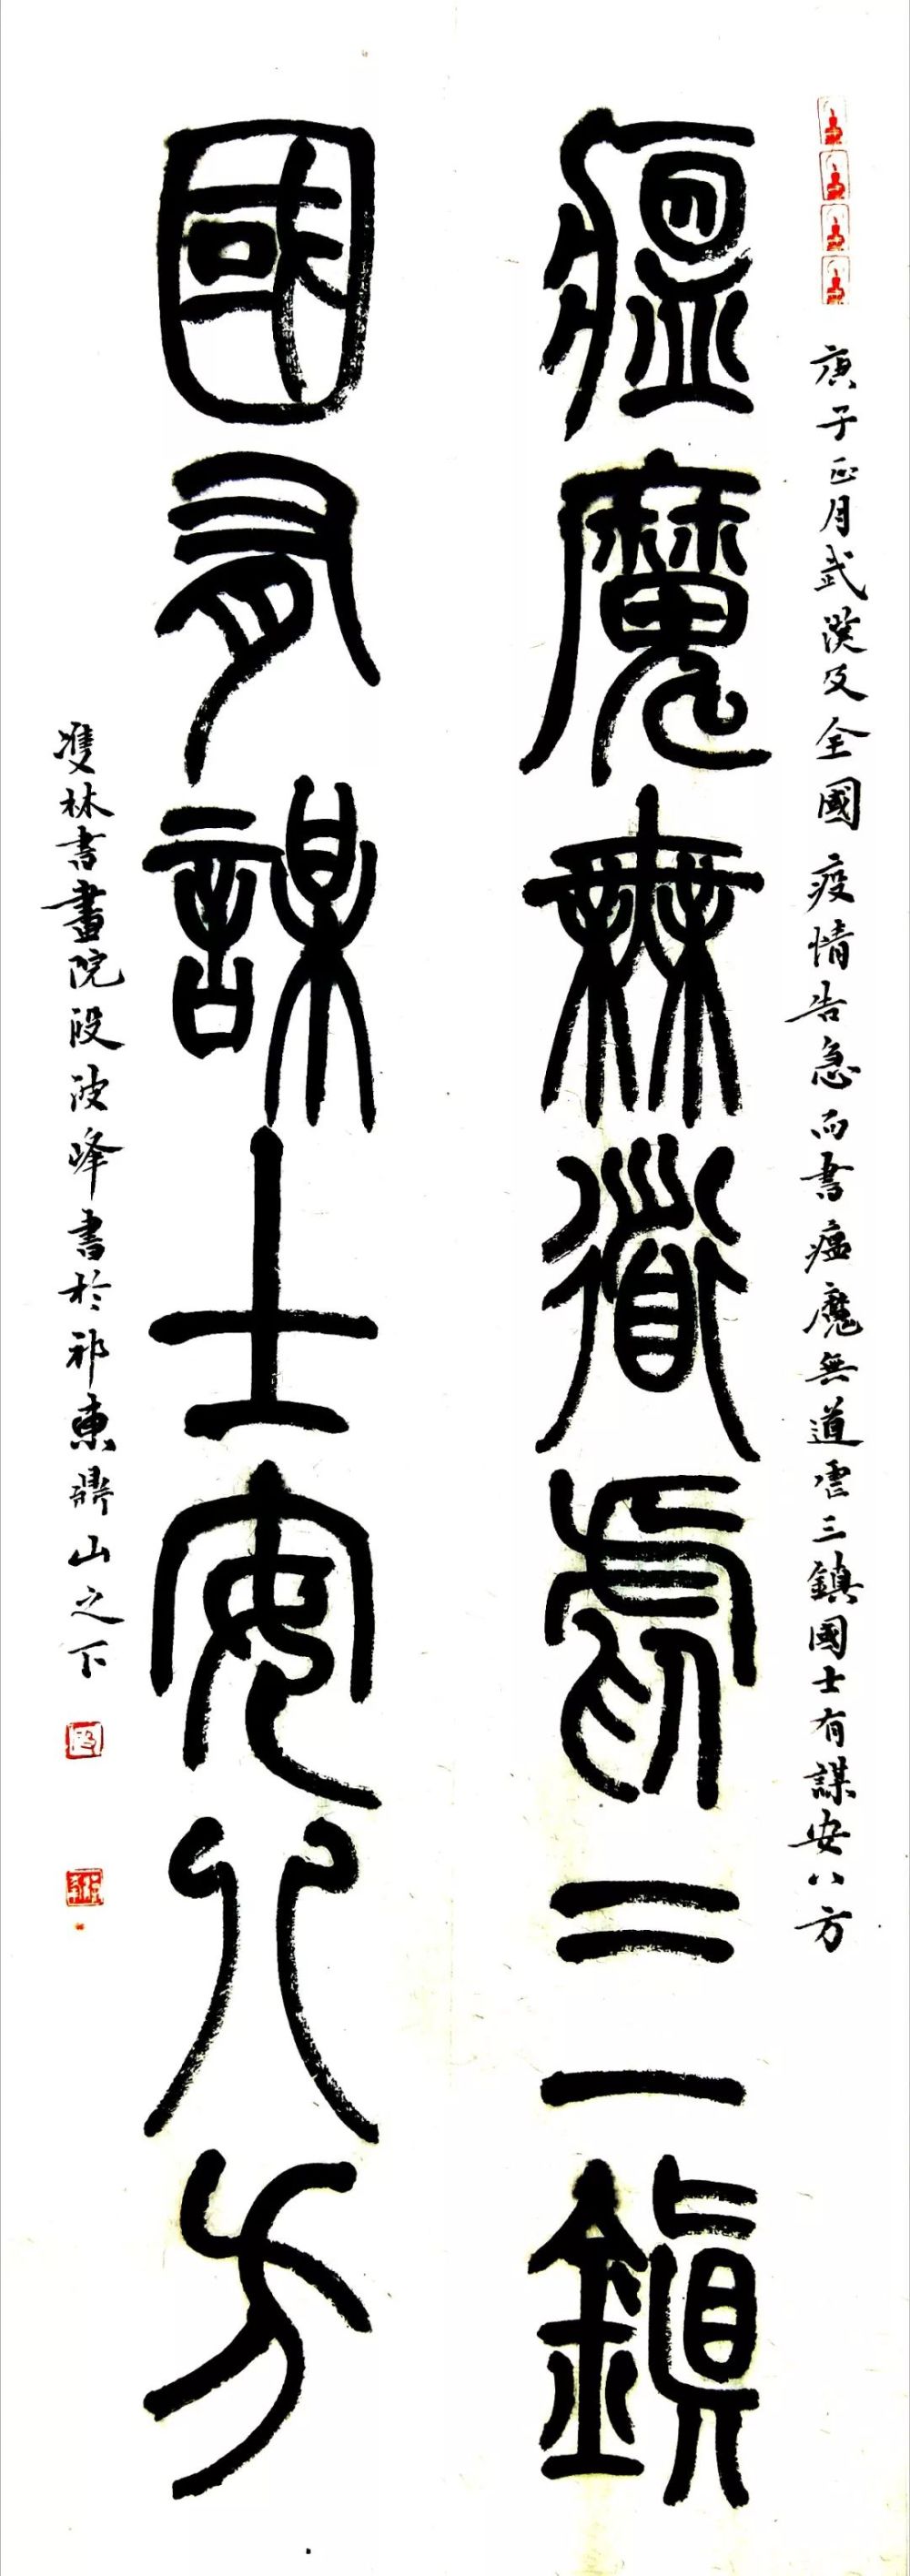 庚子正月武漢及全國疫情告急而書瘟魔無道虐三鎮國士有謀安八方
瘟魔無道虐三鎮
國有謀士安八方
雙林書畫院段波峰書於祁東鼎山之下